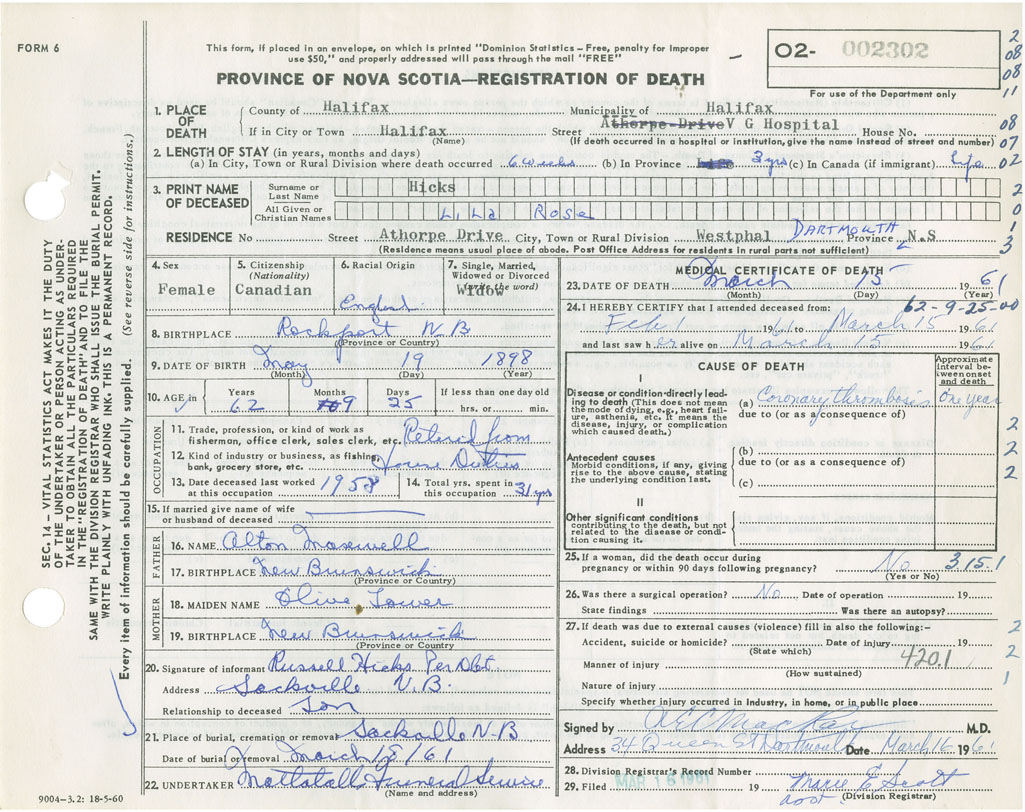 FORM 6
This form, if placed in an envelope, on which is printed "Dominion Statistics – Free, penalty for improper
use $50," and properly addressed will pass through the mail "FREE"
PROVINCE OF NOVA SCOTIA—REGISTRATION OF DEATH
02- 002302
For use of the Department only
2
08
08
11
08
07
02
2
0
1
3
1. PLACE OF DEATH
County of Halifax Municipality of Halifax
If in City or Town Halifax Street Athorpe Drive V G Hospital House No.
(Name) (If death occurred in a hospital or institution, give the name instead of street and number)
2. LENGTH OF STAY (in years, months and days)
(a) In City, Town or Rural Division where death occurred 6 weeks (b) In Province 3 yrs (c) In Canada (if immigrant) Life
3. PRINT NAME OF DECEASED
Surname or Last Name Hicks
All Given or Christian Names LILA ROSE
RESIDENCE No Street Athorpe Drive City, Town or Rural Division Westphal DARTMOUTH Province N.S
(Residence means usual place of abode. Post Office Address for residents in rural parts not sufficient)
4. Sex Female
5. Citizenship (Nationality) Canadian
6. Racial Origin English
7. Single, Married, Widowed or Divorced (write the word) Widow
8. BIRTHPLACE Rockport N B
(Province or Country)
9. DATE OF BIRTH May 19 1898
(Month) (Day) (Year)
10. AGE in Years 62 Months 9 Days 25 If less than one day old hrs. or min.
OCCUPATION
11. Trade, profession, or kind of work as fisherman, office clerk, sales clerk, etc. Retired from
12. Kind of industry or business, as fishing, bank, grocery store, etc. House Duties
13. Date deceased last worked at this occupation 1958
14. Total yrs. spent in this occupation 31 yrs
15. If married give name of wife or husband of deceased
FATHER
16. NAME Alton Maxwell
17. BIRTHPLACE New Brunswick
(Province or Country)
MOTHER
18. MAIDEN NAME Olive Tower
19. BIRTHPLACE New Brunswick
(Province or Country
20. Signature of informant Russell Hicks Per
Address Sackville N.B.
Relationship to deceased Son
21. Place of burial, cremation or removal Sackville N-B
Date of burial or removal March 18/61
22. UNDERTAKER Mattatall Funeral Service
(Name and address)
MEDICAL CERTIFICATE OF DEATH
23. DATE OF DEATH March 15 1961
(Month) (Day) (Year)
62-9-25-00
24. I HEREBY CERTIFY that I attended deceased from:
Feb 1 1961 to March 15 1961
and last saw her alive on March 15 1961
CAUSE OF DEATH
Approximate interval between onset and death
I
Disease or condition directly leading to death (This does not mean the mode of dying, e.g., heart failure, asthenia, etc. It means the disease, injury, or complication which caused death)
(a) Coronary thrombosis one year
due to (or as a consequence of)
Antecedent causes
Morbid conditions, if any, giving rise to the above cause, stating the underlying condition last.
(b)
due to (or as a consequence of)
(c)
II
Other significant conditions contributing to the death, but not related to the disease or condition causing it.
2
2
2
25. If a woman, did the death occur during pregnancy or within 90 days following pregnancy? No
(Yes or No)
315.1
26. Was there a surgical operation? No Date of operation 19
State findings Was there an autopsy?
27. If death was due to external causes (violence) fill in also the following:–
Accident, suicide or homicide? Date of injury 19
(State which)
420.1
Manner of injury
(How sustained)
Nature of injury
Specify whether injury occurred in Industry, in home, or in public place
2
2
1
Signed by A E C MacKay M.D.
Address 34 Queen St Dartmouth Date March 16 1961
28. Division Registrar's Record Number
29. Filed MAR 16 1961 19 Marie E Scott
(Division Registrar)
SEC. 14 – VITAL STATISTICS ACT MAKES IT THE DUTY
OF THE UNDERTAKER OR PERSON ACTING AS UNDER-
TAKER TO OBTAIN ALL THE PARTICULARS REQUIRED
IN THE "REGISTRATION OF DEATH" AND TO FILE THE
SAME WITH THE DIVISION REGISTRAR WHO SHALL ISSUE THE BURIAL PERMIT.
WRITE PLAINLY WITH UNFADING INK. THIS IS A PERMANENT RECORD.
Every item of information should be carefully supplied. (See reverse side for instructions.)
9004-3.2: 18-5-60